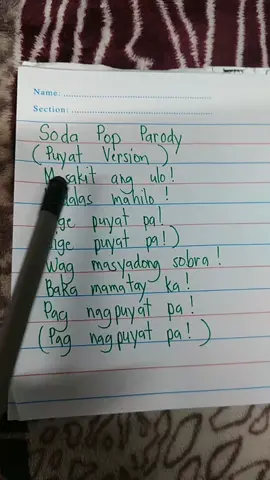 Name:
Section:
Soda Pop Parody
(Puyat Version)
Masakit ang ulo!
mahilo!
puyat pa!
puyat pa!)
Wag masyadong sobra!
Baka mamatay ka!
Pag nagpuyat pa!
(Pag nagpuyat pa!)